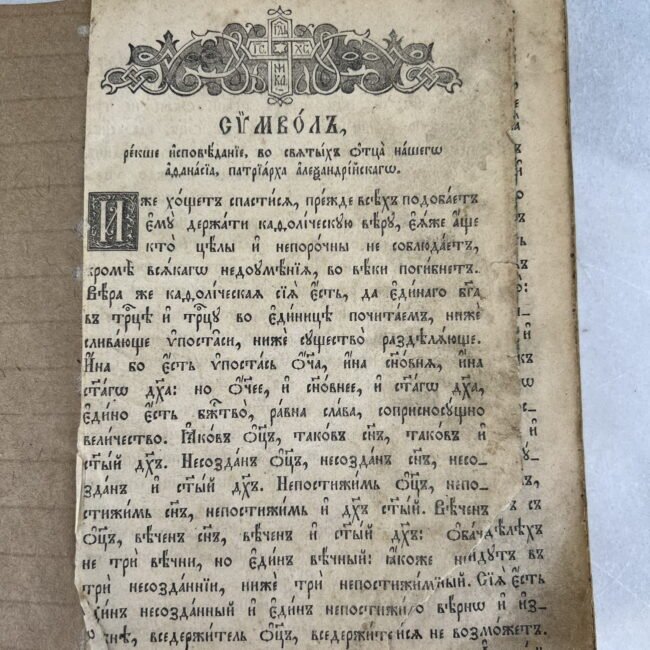 ГДЬ
ІС ХС
НИКА
СѴ́МВО́ЛЪ,
ре́кше и҆сповѣ́данїе, во свѧты́хъ ѻ҆тца̀ на́шегѡ
а҆ѳана́сїа, патрїа́рха а҆леѯандрі́йскагѡ.
И҆́же хо́щетъ спасти́сѧ, пре́жде всѣ́хъ подоба́етъ
є҆мꙋ̀ держа́ти каѳолі́ческꙋю вѣ́рꙋ, є҆ѧ́же а҆́ще
кто̀ цѣ́лы и҆ непоро́чны не соблюда́етъ,
кромѣ̀ всѧ́кагѡ недоꙋмѣ́нїѧ, во вѣ́ки поги́бнетъ.
Вѣ́ра же каѳолі́ческаѧ сїѧ̀ є҆́сть, да є҆ди́наго бг҃а
въ трⷪ҇цѣ и҆ трⷪ҇цꙋ во є҆ди́ницѣ почита́ем, нижѐ
слива́юще ѵ҆поста̑си, нижѐ сꙋщество̀ раздѣлѧ́юще.
И҆́на бо є҆́сть ѵ҆поста́сь ѻ҆́ч҃а, и҆́на сн҃о́внѧ, и҆́на
ст҃а́гѡ дх҃а: но ѻ҆́ч҃ее, и҆ сн҃о́внее, и҆ ст҃а́гѡ дх҃а,
є҆ди́но є҆́сть бж҃тво̀, ра́вна сла́ва, соприсносꙋ́щно
вели́чество. Ꙗ҆ко́въ ѻ҆ц҃ъ, тако́въ сн҃ъ, тако́въ и҆
ст҃ы́й дх҃ъ. Несозда́нъ ѻ҆ц҃ъ, несозда́нъ сн҃ъ, несо-
зда́нъ и҆ ст҃ы́й дх҃ъ. Непостижи́мь ѻ҆ц҃ъ, непо-
стижи́мь сн҃ъ, непостижи́мь и҆ дх҃ъ ст҃ы́й. Вѣ́чен
ѻ҆ц҃ъ, вѣ́чен сн҃ъ, вѣ́чен и҆ ст҃ы́й дх҃ъ: ѻ҆ба́ч
не трѝ вѣ́чни, но є҆ди́нъ вѣ́чный: ꙗ҆́коже н
трѝ несозда́ннїи, нижѐ трѝ непостижи́м
несозда́нный и҆ є҆ди́нъ непостижи
вседержи́тель ѻ҆ц҃ъ, вседержите не возмо́жетъ.